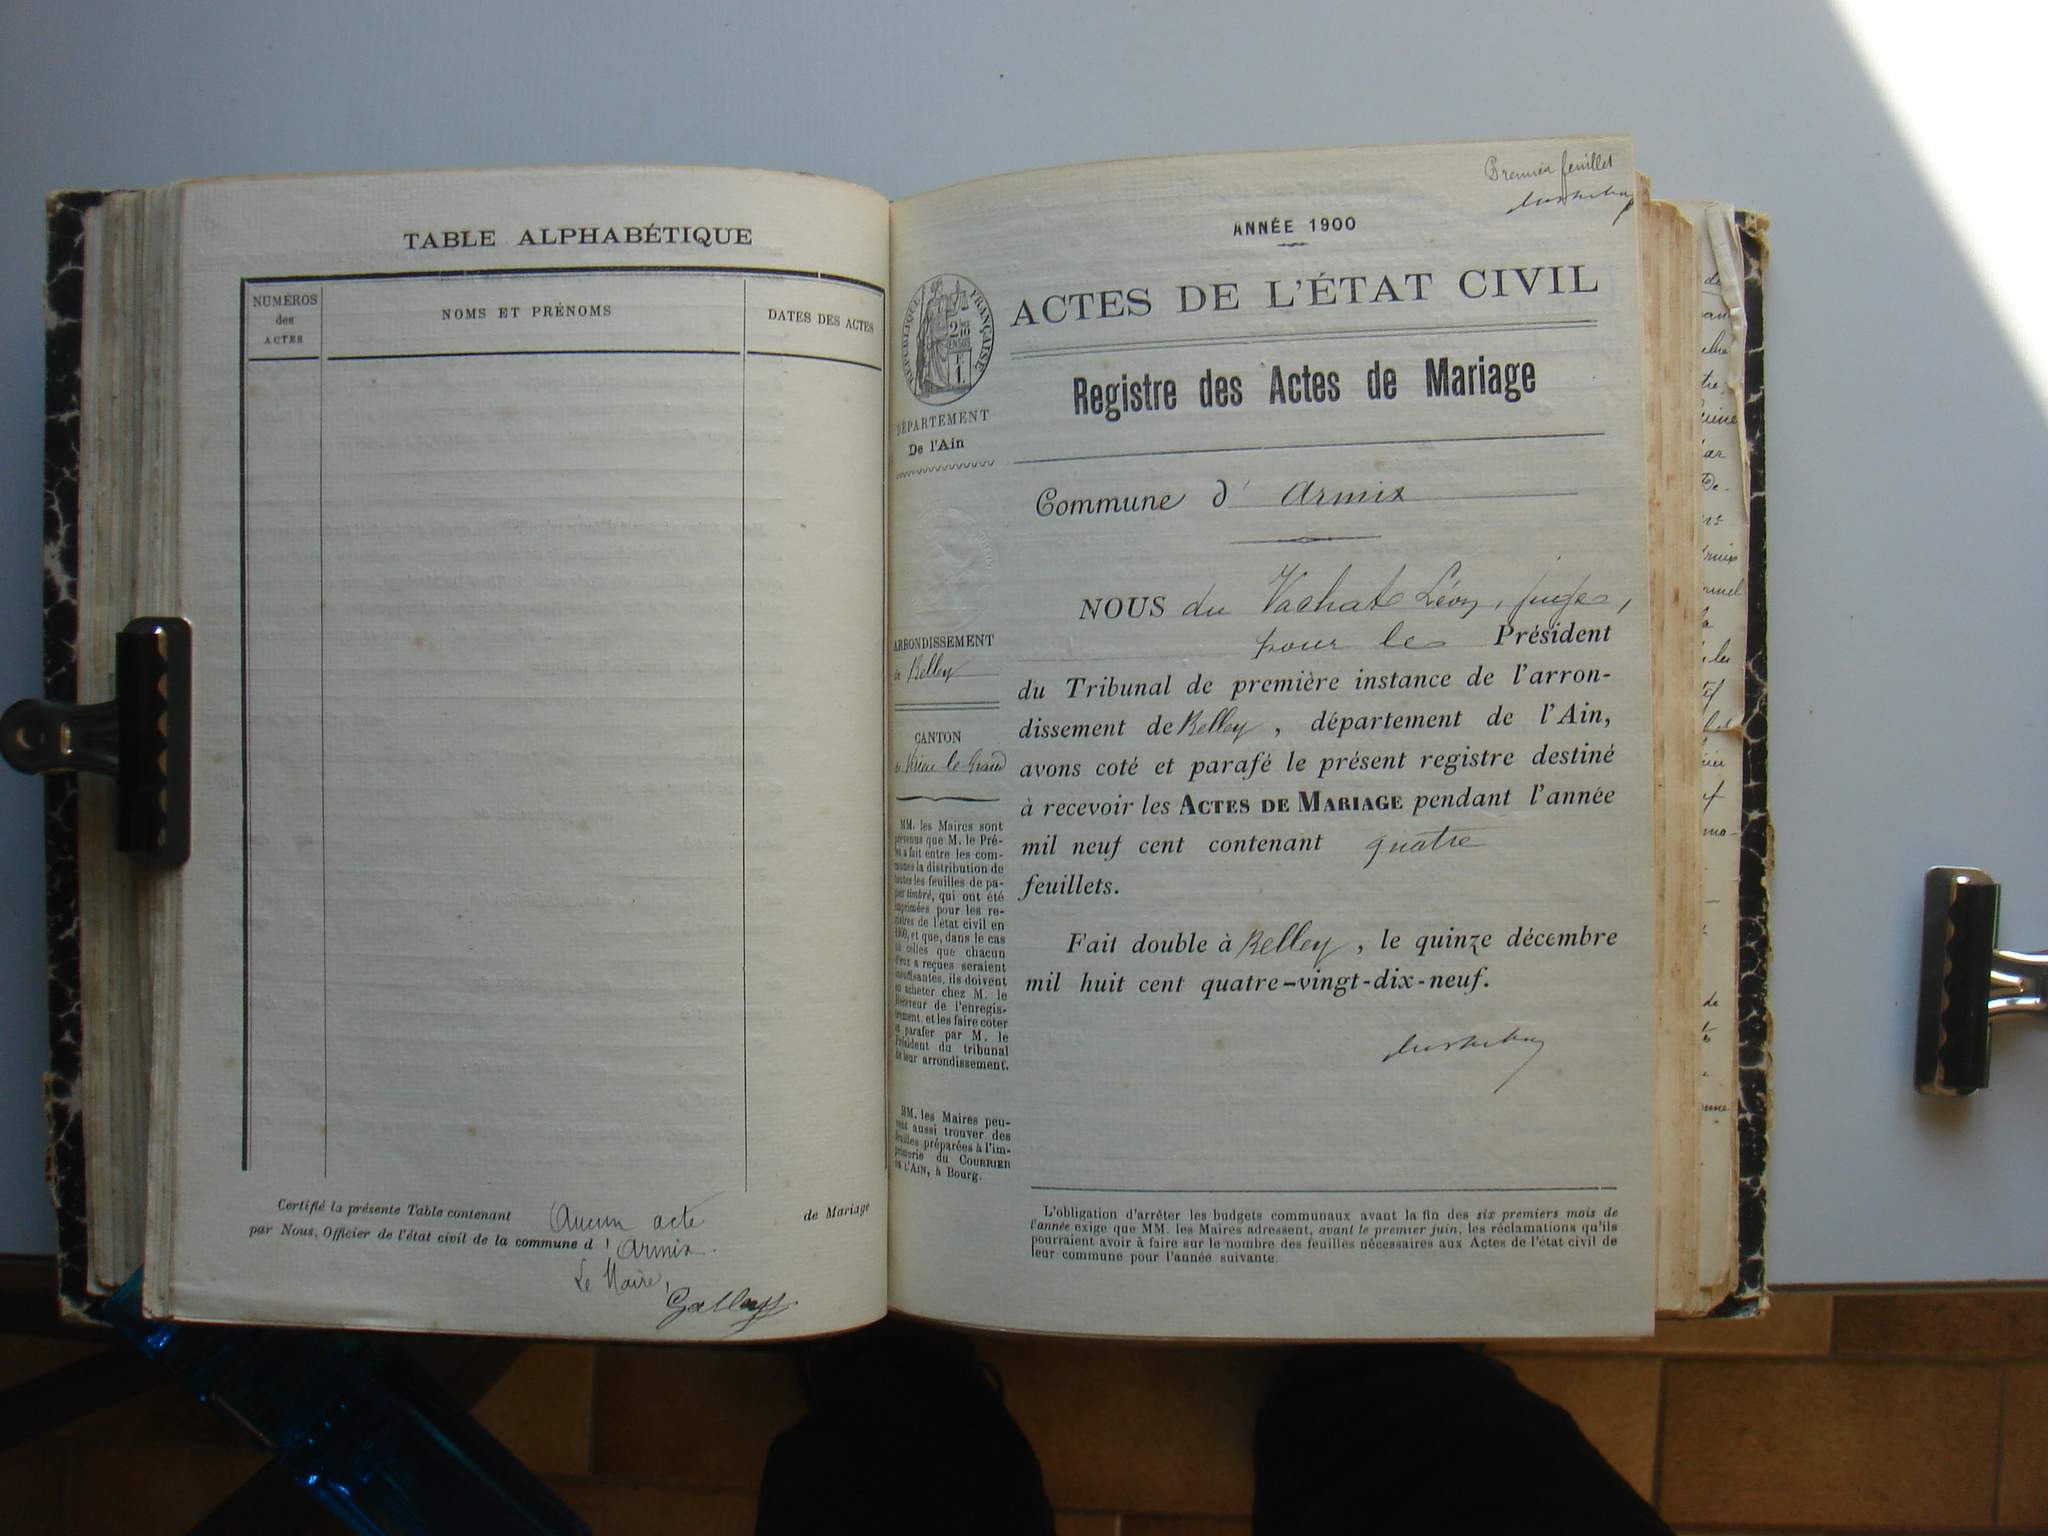 TABLE ALPHABÉTIQUE
NUMÉROS
des
ACTES
NOMS ET PRÉNOMS
DATES DES ACTES
Certifié la présente Table contenant Aucun acte de Mariage
par Nous, Officier de l'état civil de la commune d'Armix.
Le Maire,
Premier feuillet
ANNÉE 1900
ACTES DE L'ÉTAT CIVIL
Registre des Actes de Mariage
RÉPUBLIQUE FRANÇAISE
DÉPARTEMENT
De l'Ain
Commune d' Armix
NOUS du Vachat Léon, juge,
pour le Président
du Tribunal de première instance de l'arron-
dissement de Belley, département de l'Ain,
avons coté et parafé le présent registre destiné
à recevoir les ACTES DE MARIAGE pendant l'année
mil neuf cent contenant quatre
feuillets.
Fait double à Belley, le quinze décembre
mil huit cent quatre-vingt-dix-neuf.
ARRONDISSEMENT
de Belley
CANTON
de Virieu le Grand
MM. les Maires sont
prévenus que M. le Pré-
fet a fait entre les com-
munes la distribution de
toutes les feuilles de pa-
pier timbré, qui ont été
imprimées pour les re-
gistres de l'état civil en
1900, et que, dans le cas
où celles que chacun
d'eux a reçues seraient
insuffisantes, ils doivent
en acheter chez M. le
Receveur de l'enregis-
trement, et les faire coter
et parafer par M. le
Président du tribunal
de leur arrondissement.
MM. les Maires peu-
vent aussi trouver des
feuilles préparées à l'im-
primerie du COURRIER
DE L'AIN, à Bourg.
L'obligation d'arrêter les budgets communaux avant la fin des six premiers mois de
l'année exige que MM. les Maires adressent, avant le premier juin, les réclamations qu'ils
pourraient avoir à faire sur le nombre des feuilles nécessaires aux Actes de l'état civil de
leur commune pour l'année suivante.